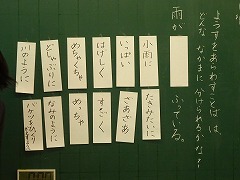 ようすをあらわすことばは、
どんな なかまに 分けられるかな?
雨が
ふっている。
小雨に
いっぱい
はげしく
めちゃくちゃ
どしゃぶりに
川のように
たきみたいに
さあさあ
すごく
めっちゃ
なみのように
バケツをひっくり